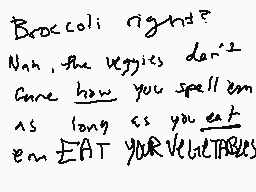 Broccoli right?
Nah, the veggies don't
care how you spell em
as long as you eat
em EAT YOUR VEGETABLES